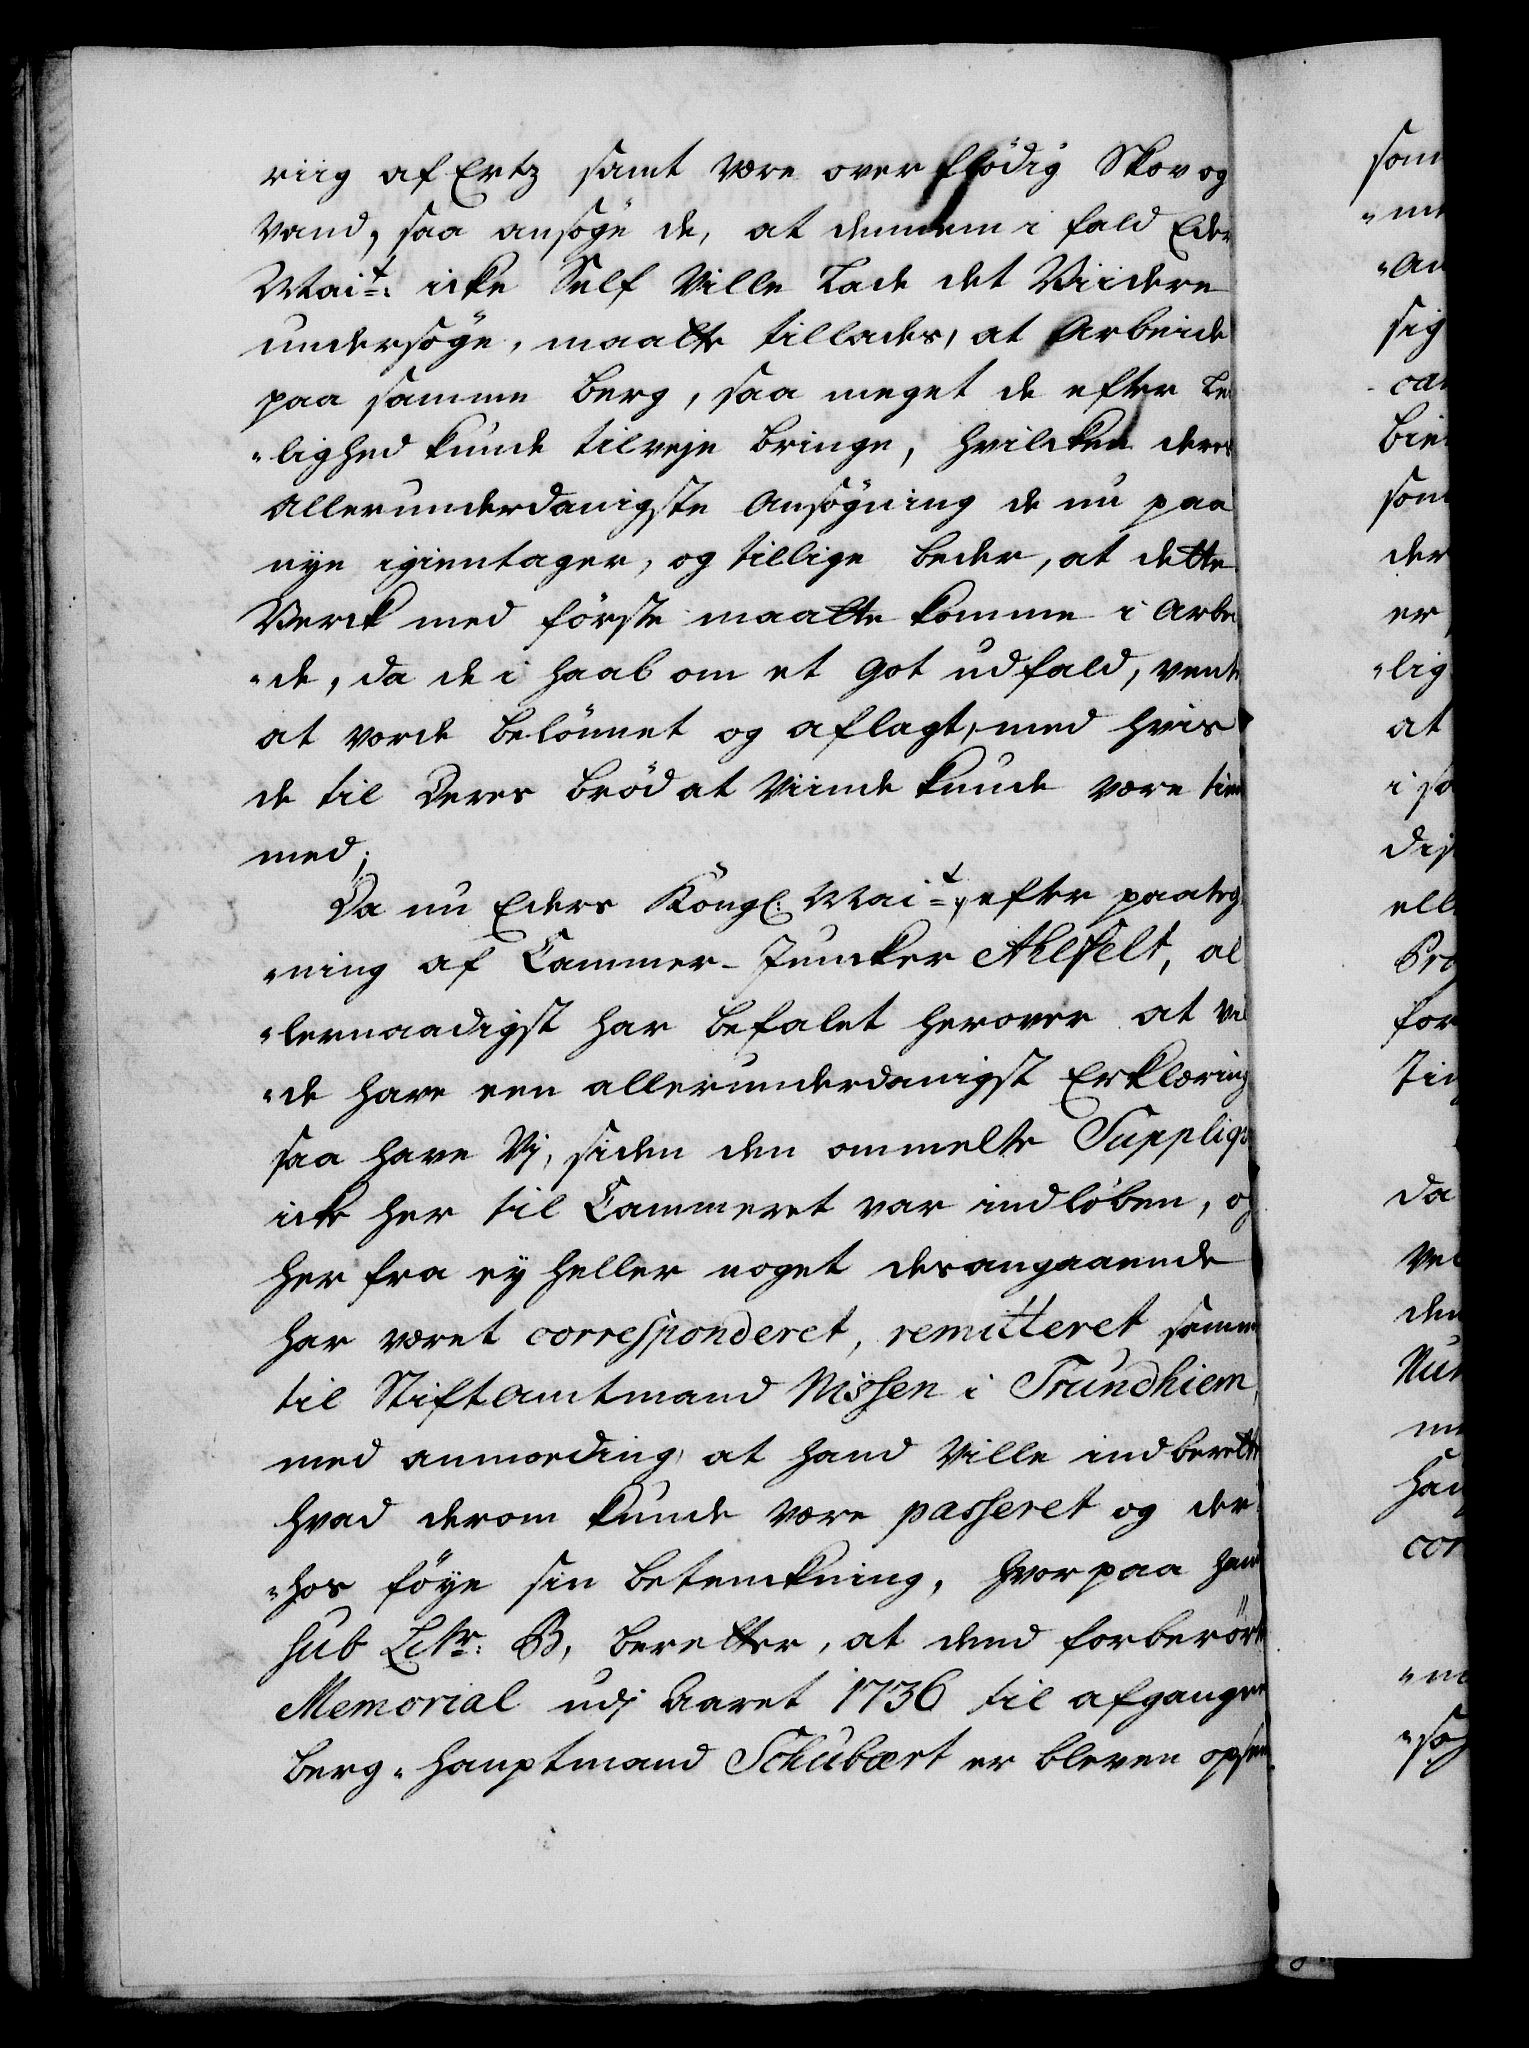 riig af Ertz samt være overflødig Skov og
Vand, saa ansøge de, at dennem i fald Eders
Mai:t icke Self Ville Lade det Viidere
undersøge, maatte tillades, at Arbeide
paa samme berg, saa meget de efter Lei
"lighed kunde tilveje bringe, hvilcken deres
Allerunderdanigste Ansøgning de nu paa
nye igientager, og tillige beder, at dette
Verck med første maatte komme i Arbei
"de, da de i haab om et got udfald, vente
at vorde belønnet og aflagt, med hvis
de til Deres brød at Viinde kunde være tient
med;
Da nu Eders Kongl: Mai:t, efter paateg
"ning af Cammer-Juncker Ahlfelt, al
"lernaadigst har befalet herover at vil
"de have een allerunderdanigst Erklæring
saa have Vj, siden den ommelte Suppliqve
icke her til Cammeret var indløben, og
her fra ey heller noget desangaaende
har været corresponderet, remitteret samme
til Stiftamtmand Nissen i Trundhiem,
med anmoding, at hand Ville indberette
hvad derom kunde være passeret og der
"hos føye sin betenckning, hvorpaa hand
sub Litr: B, beretter, at dend forberørte
Memorial udj Aaret 1736 til afgangne
berg-hauptmand Schubært er bleven opsen
som
sig
som
der
er
"lig
at
da